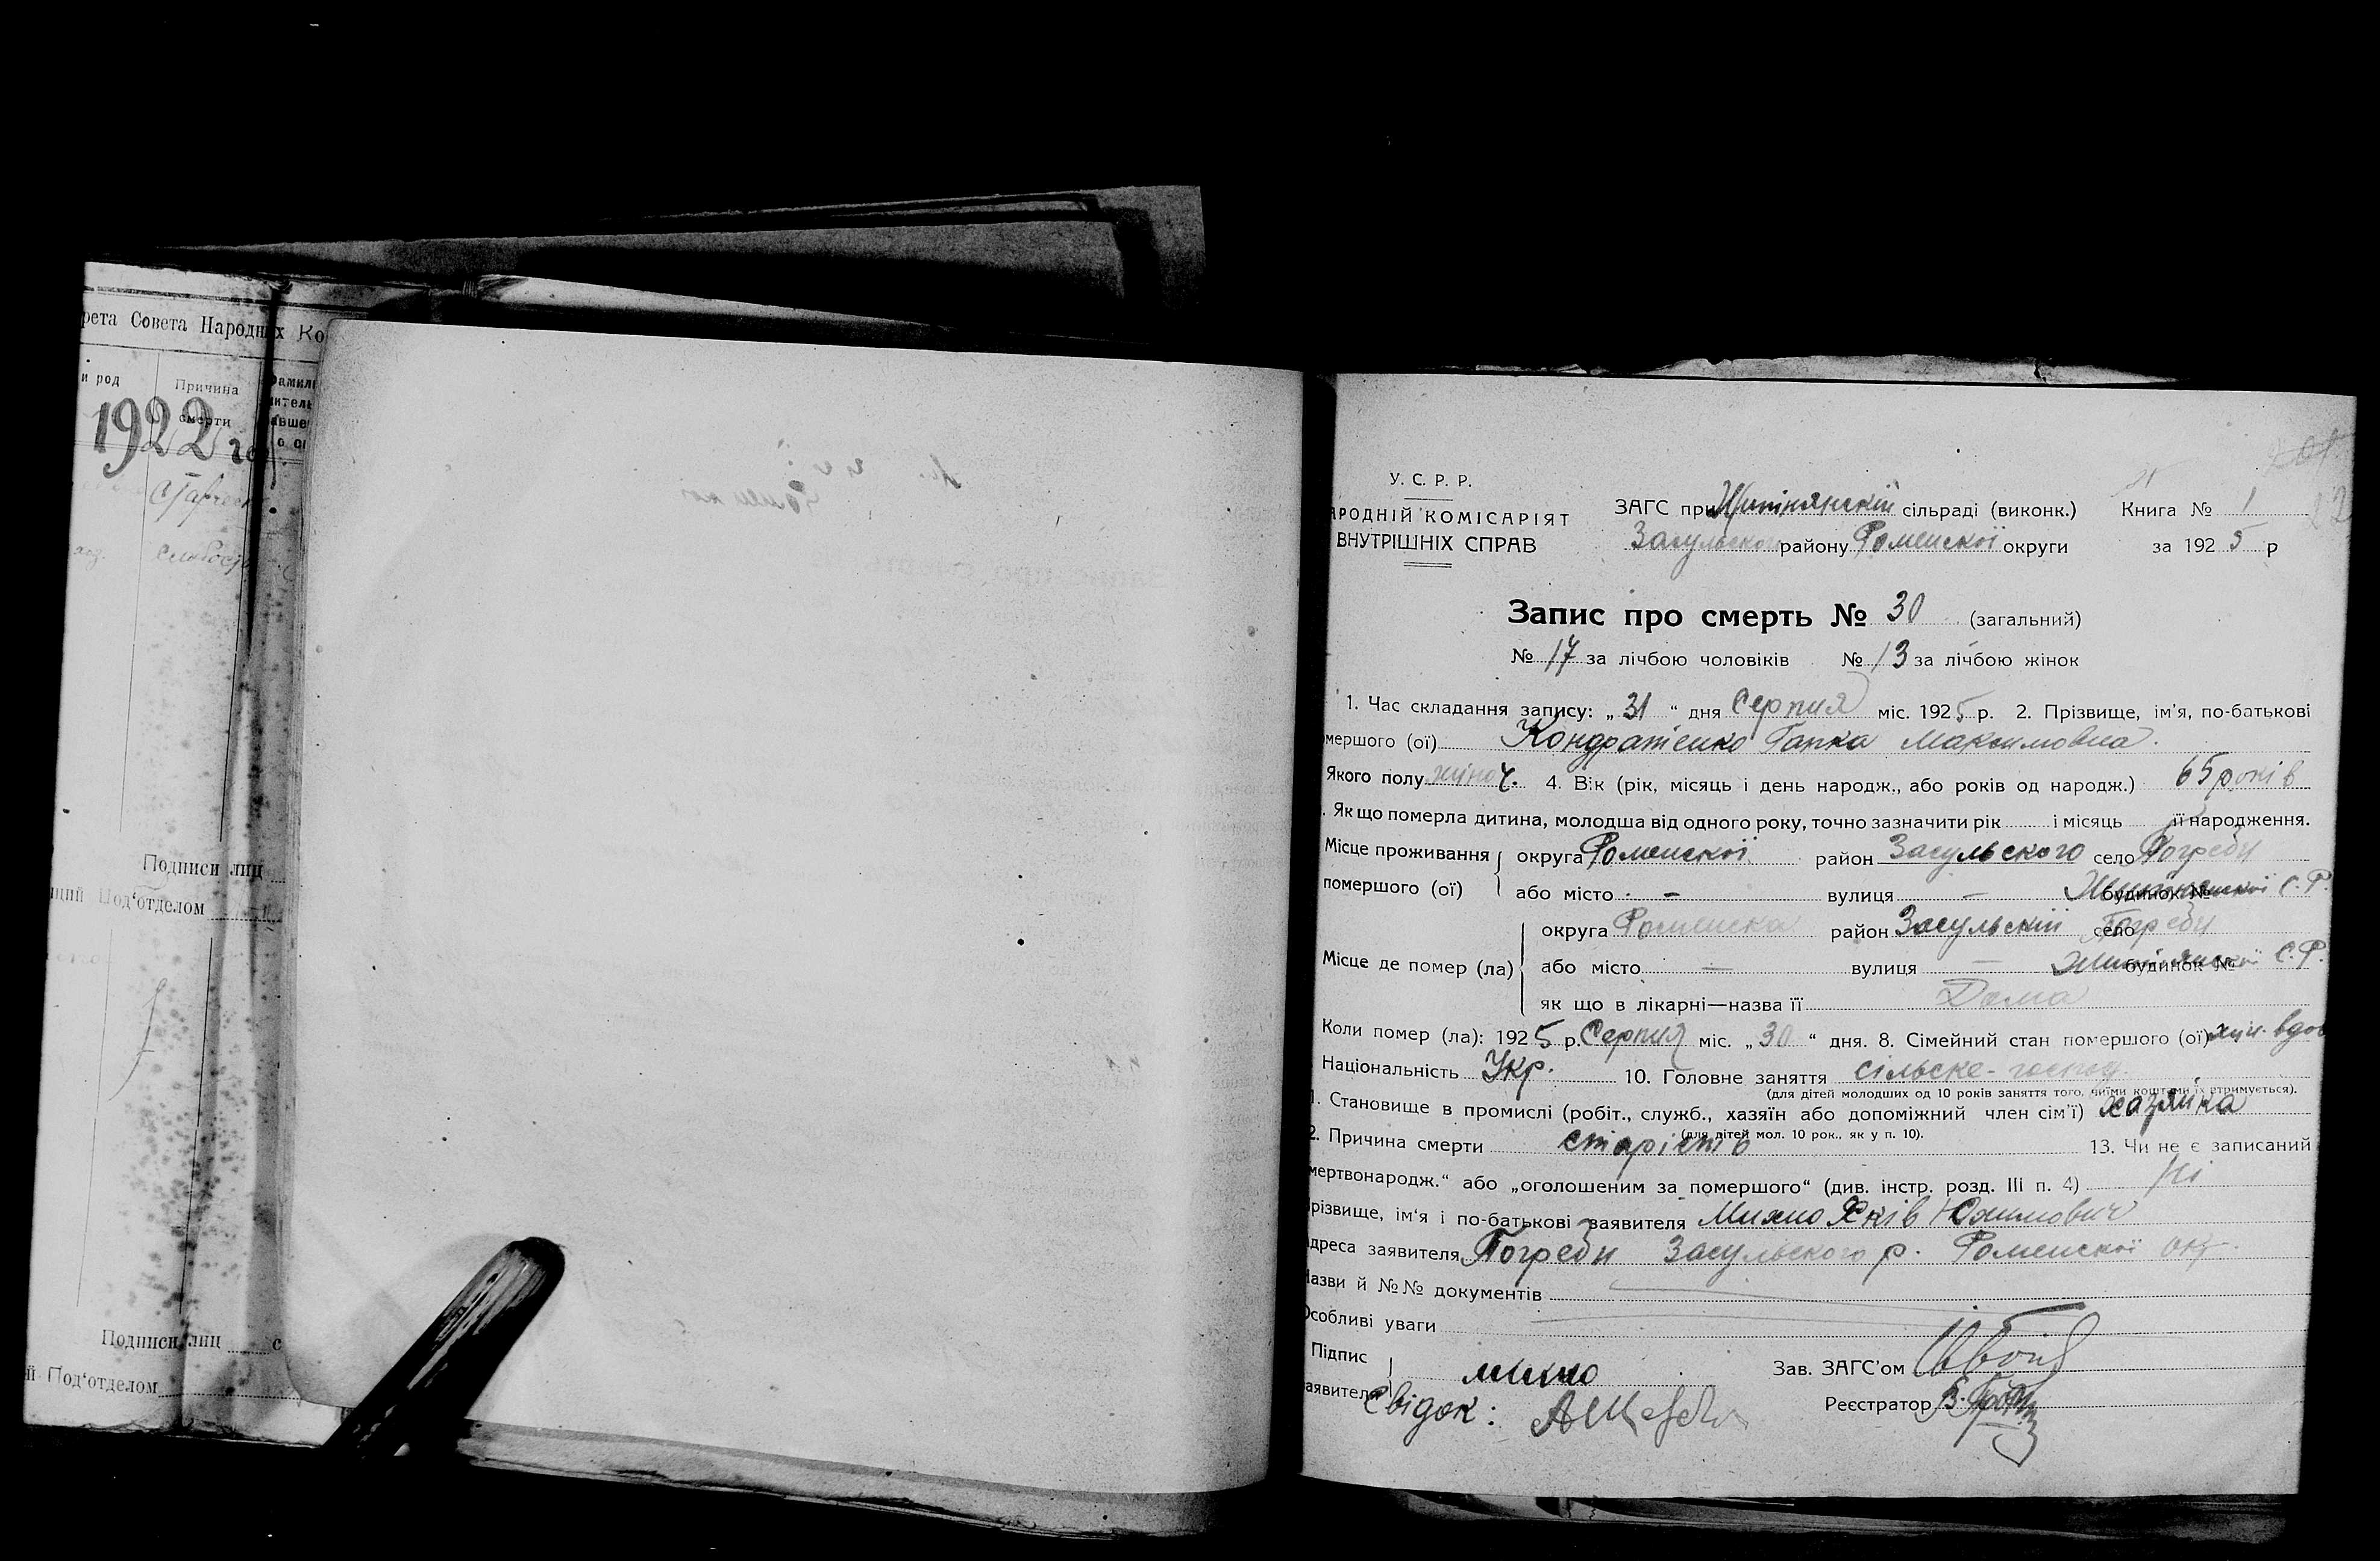 рета Совета Народных Ко
и род
Причина
смерти
1922
Подписи лиц
Под‘отделом
Подписи лиц
Под‘отделом
У. С. Р. Р.
АРОДНІЙ КОМІСАРІЯТ
ВНУТРІШНІХ СПРАВ
ЗАГС при сільраді (виконк.) Книга № 1
Засульского району Роменскої округи за 1925 р
Запис про смерть № 30 (загальний)
№ 17 за лічбою чоловіків № 13 за лічбою жінок
1. Час складання запису: „31“ дня Серпня міс. 1925 р. 2. Прізвище, ім'я, по-батькові
мершого (ої) Кондратієнко Гапка Максимовна.
Якого полу жіноч. 4. Вік (рік, місяць і день народж., або років од народж.) 65 років
. Як що померла дитина, молодша від одного року, точно зазначити рік і місяць її народження.
Місце проживання округа Роменскої район Засульского село Погреби
помершого (ої) або місто - вулиця - будинок № С.Р.
округа Роменска район Засульский село Погреби
Місце де помер (ла) або місто — вулиця — будинок № С.Р.
як що в лікарні—назва її Дома
Коли помер (ла): 1925 р. Серпня міс. „30“ дня. 8. Сімейний стан помершого (ої)
Національність Укр. 10. Головне заняття сільске-господ.
(для дітей молодших од 10 років заняття того, чиїми коштами їх втримується).
1. Становище в промислі (робіт., служб., хазяїн або допоміжний член сім'ї) хазяйка
(для дітей мол. 10 рок., як у п. 10).
2. Причина смерти старість 13. Чи не є записаний
мертвонародж.“ або „оголошеним за помершого“ (див. інстр. розд. III п. 4) Ні
різвище, ім‘я і по-батькові заявителя Михно Яків Юхимович
дреса заявителя Погреби Засульского р. Роменскої окр.
Назви й №№ документів
Особливі уваги
Підпис
заявителя
михно
Зав. ЗАГС'ом
Свідок:
Реєстратор